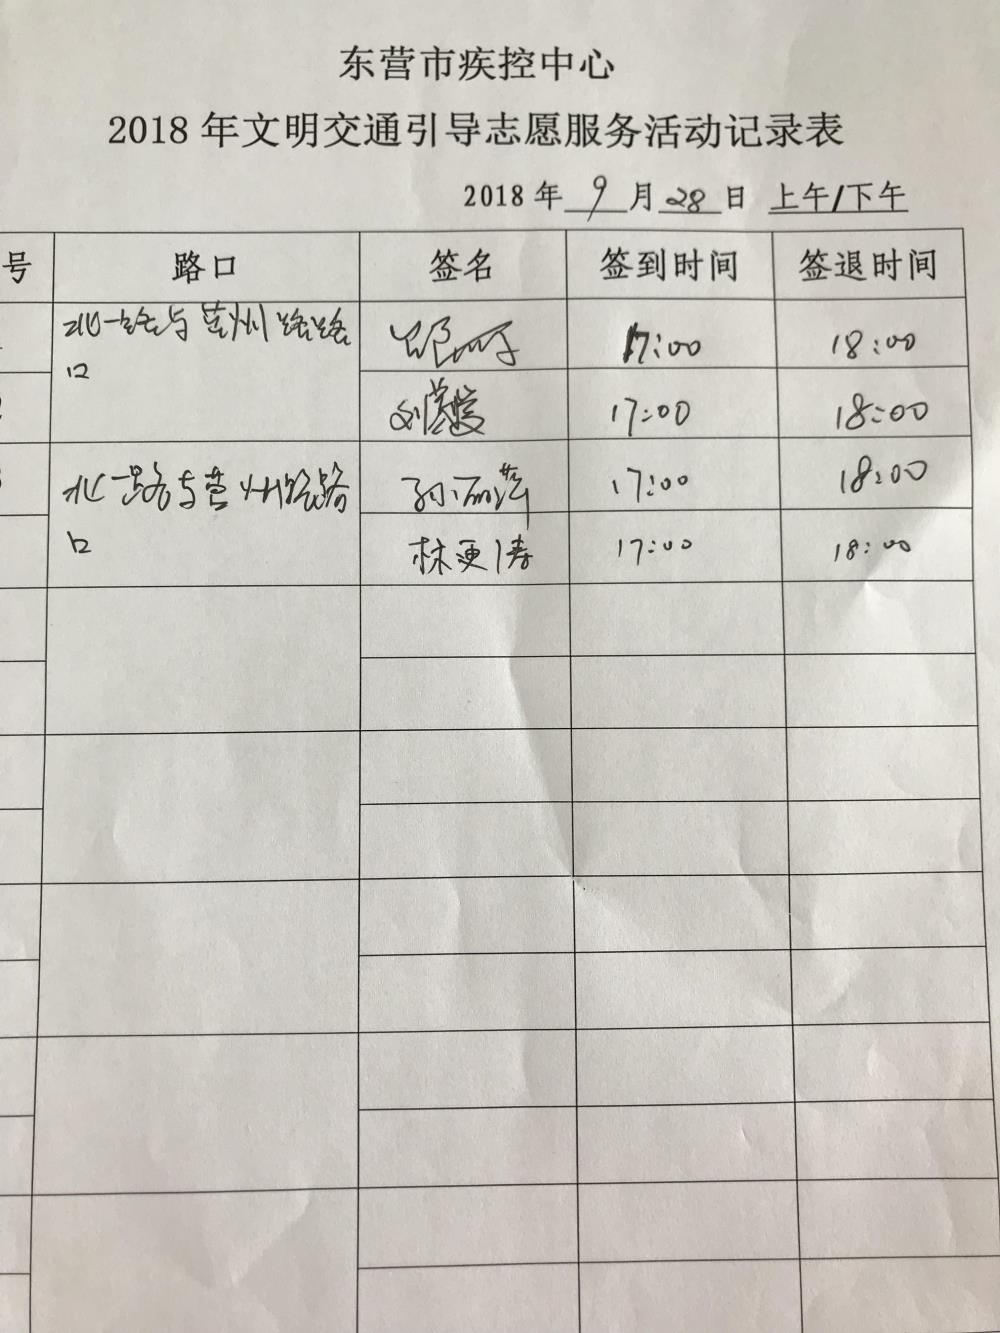 东营市疾控中心
2018年文明交通引导志愿服务活动记录表
2018年 9 月 28 日 上午/下午
号 路口 签名 签到时间 签退时间
北一路与莒州路路口 17:00 18:00
17:00 18:00
北一路与莒州路路口 孙丽萍 17:00 18:00
林更涛 17:00 18:00